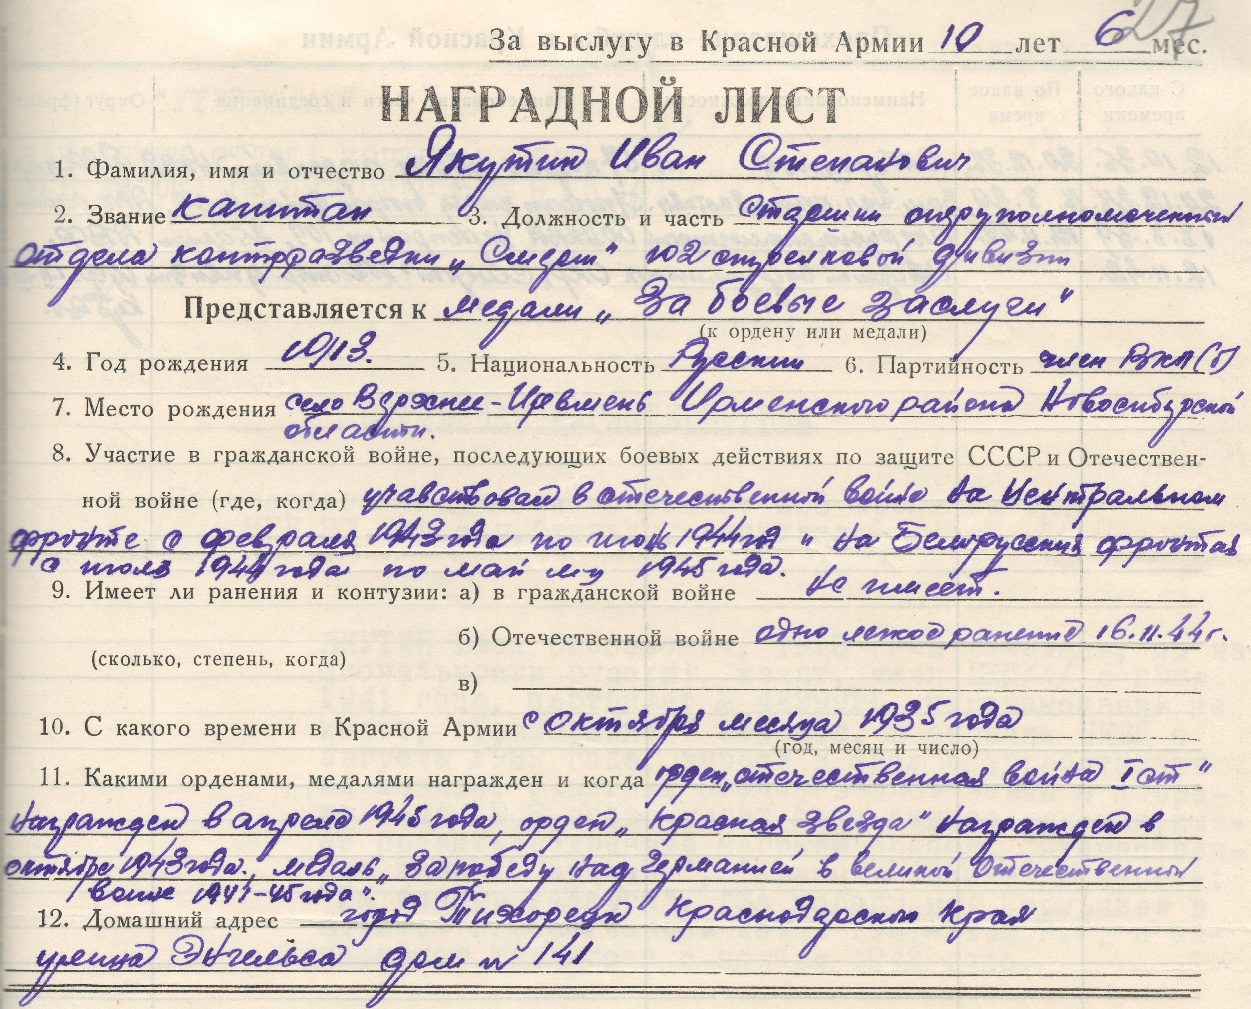 27
За выслугу в Красной Армии 10 лет 6 мес.
НАГРАДНОЙ ЛИСТ
1. Фамилия, имя и отчество Якутин Иван Степанович
2. Звание капитан 3. Должность и часть старший оперуполномоченный
отдела контрразведки „Смерш" 102 стрелковой дивизии
Представляется к медали „За боевые заслуги"
(к ордену или медали)
4. Год рождения 1913. 5. Национальность Русский 6. Партийность член ВКП(б)
7. Место рождения село Верхнее-Ирмень Ирменского района Новосибирской
области.
8. Участие в гражданской войне, последующих боевых действиях по защите СССР и Отечествен-
ной войне (где, когда) участвовал в отечественной войне на Центральном
фронте с февраля 1943 года по июль 1944 год и на Белорусских фронтах
с июля 1944 года по май м-ц 1945 года.
9. Имеет ли ранения и контузии: а) в гражданской войне не имеет.
б) Отечественной войне одно легкое ранение 16.11.44 г.
(сколько, степень, когда)
в)
10. С какого времени в Красной Армии с октября месяца 1935 года
(год, месяц и число)
11. Какими орденами, медалями награжден и когда орден „отечественная война I ст"
награжден в апреле 1945 года, орден „Красная звезда" награжден в
октябре 1943 года. медаль „За победу над Германией в великой Отечественной
войне 1941-45 года".
12. Домашний адрес город Тихорецк Краснодарского Края
улица Энгельса дом № 141